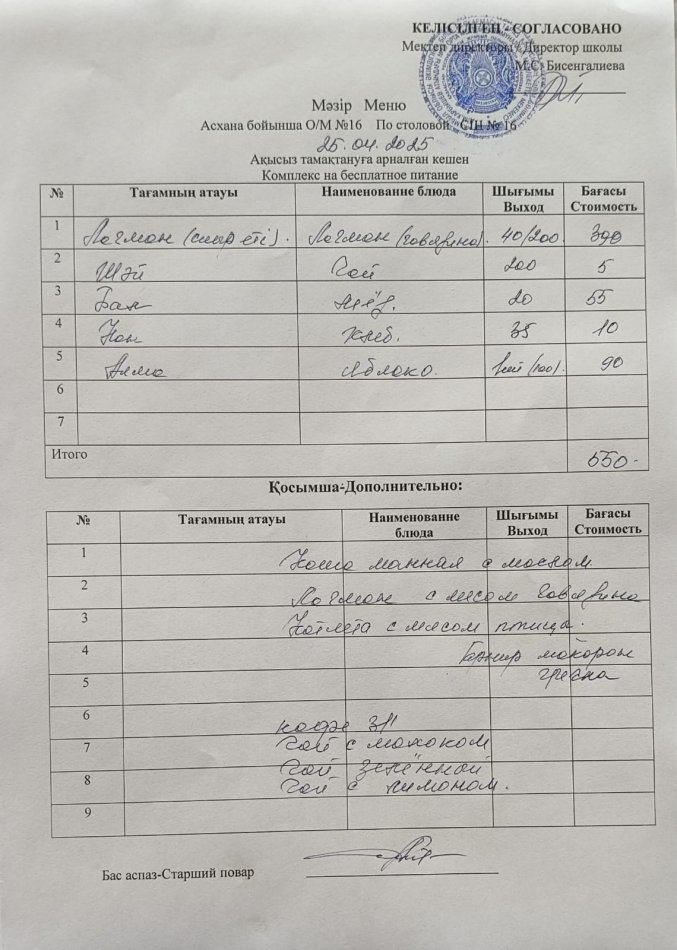 КЕЛІСІЛГЕН - СОГЛАСОВАНО
Мектеп директоры / Директор школы
М.С. Бисенгалиева
Мәзір Меню
Асхана бойынша О/М №16 По столовой СШ № 16
25.04.2025
Ақысыз тамақтануға арналған кешен
Комплекс на бесплатное питание
№ Тағамның атауы Наименование блюда Шығымы Выход Бағасы Стоимость
1 Лагман (сиыр еті). Лагман (говядина). 40/200. 390
2 Шәй Чай 200 5
3 Бал Мёд. 20 55
4 Нан Хлеб. 35 10
5 Алма Яблоко. 1шт (100). 90
6
7
Итого 550-
Қосымша-Дополнительно:
№ Тағамның атауы Наименование блюда Шығымы Выход Бағасы Стоимость
1 Каша манная с маслом
2 Лагман с мясом говядина
3 Котлета с мясом птица.
4 Гарнир макарон
5 гречка
6 кофе 3/1
7 Чай с молоком
Чай зелённой
8 Чай с лимоном.
9
Бас аспаз-Старший повар